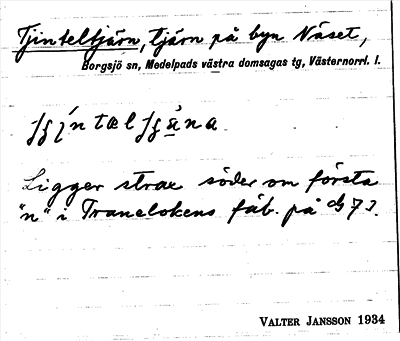 Tjinteltjärn, tjärn på byn Näset,
Borgsjö sn, Medelpads västra domsagas tg, Västernorrl. l.
Ligger strax söder om första
"n" i Tranelokens fäb. på
VALTER JANSSON 1934